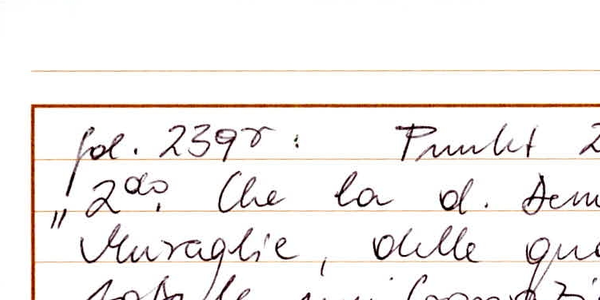 fol. 239r: Punkt 2
"2do. Che la d.
Muraglie, delle que